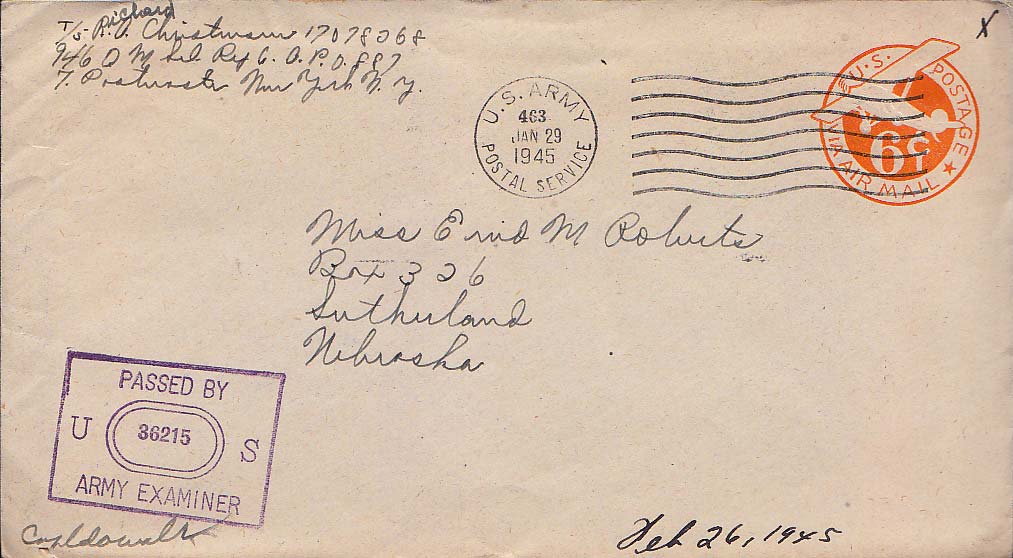 Richard
T/5 R.A. Christmann 17078268
946 Q M Rep A.P.O. 887
℅ Postmaster New York N.Y.
U.S. ARMY
463
JAN 29
1945
POSTAL SERVICE
U.S. POSTAGE
6¢
VIA AIR MAIL
X
Miss Enid M Roberts
Box 326
Sutherland
Nebraska
PASSED BY
U 36215 S
ARMY EXAMINER
Feb 26, 1945